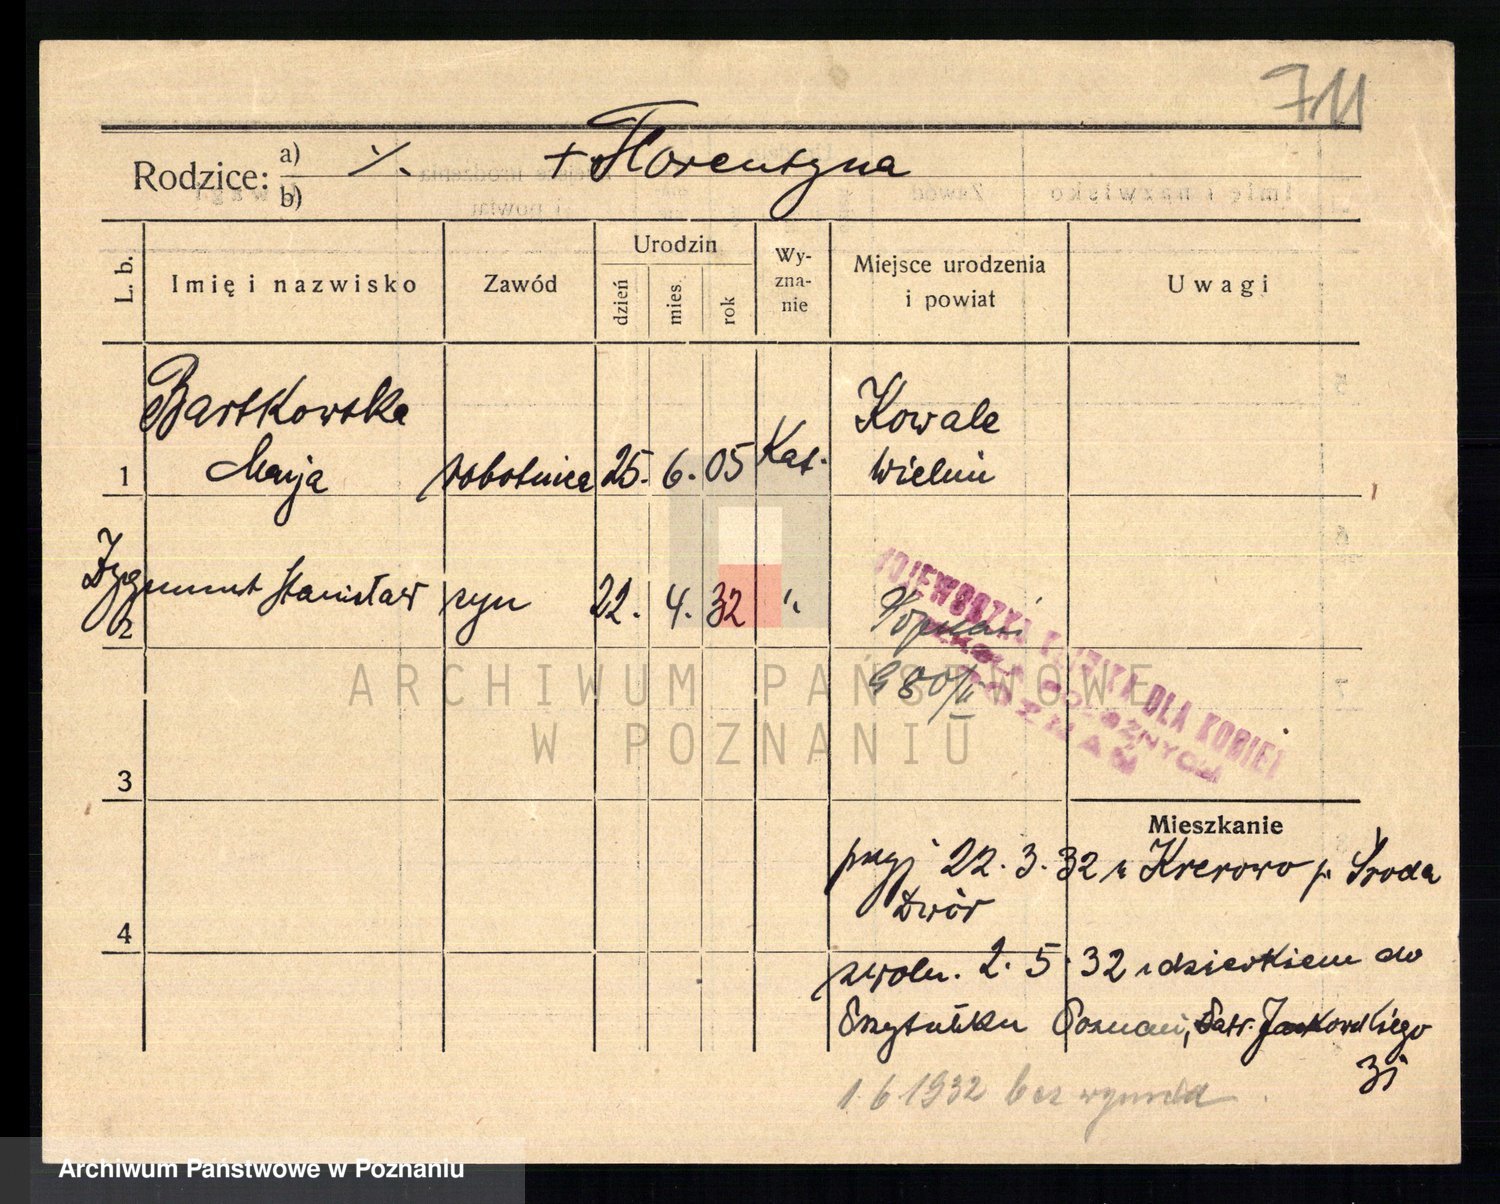 711
Rodzice: a) ·/. + Florentyna
b)
L. b. Imię i nazwisko Zawód Urodzin dzień mies. rok Wy-zna-nie Miejsce urodzenia i powiat Uwagi
Bartkowska Kowale
1 Marja robotnica 25. 6. 05 Kat. Wieluń
Zygmunt Stanisław syn 22. 4. 32 "
2 Poznań
980/II
WOJEWÓDZKA KLINIKA DLA KOBIET
POZNAŃ
3
Mieszkanie
przyj 22. 3. 32 z Krerowo p. Środa
Dwór
4
zwoln. 2. 5. 32 z dzieckiem do
Przytułku Poznań, Jankowskiego
1.6.1932 bez
ARCHIWUM PAŃSTWOWE
W POZNANIU
Archiwum Państwowe w Poznaniu